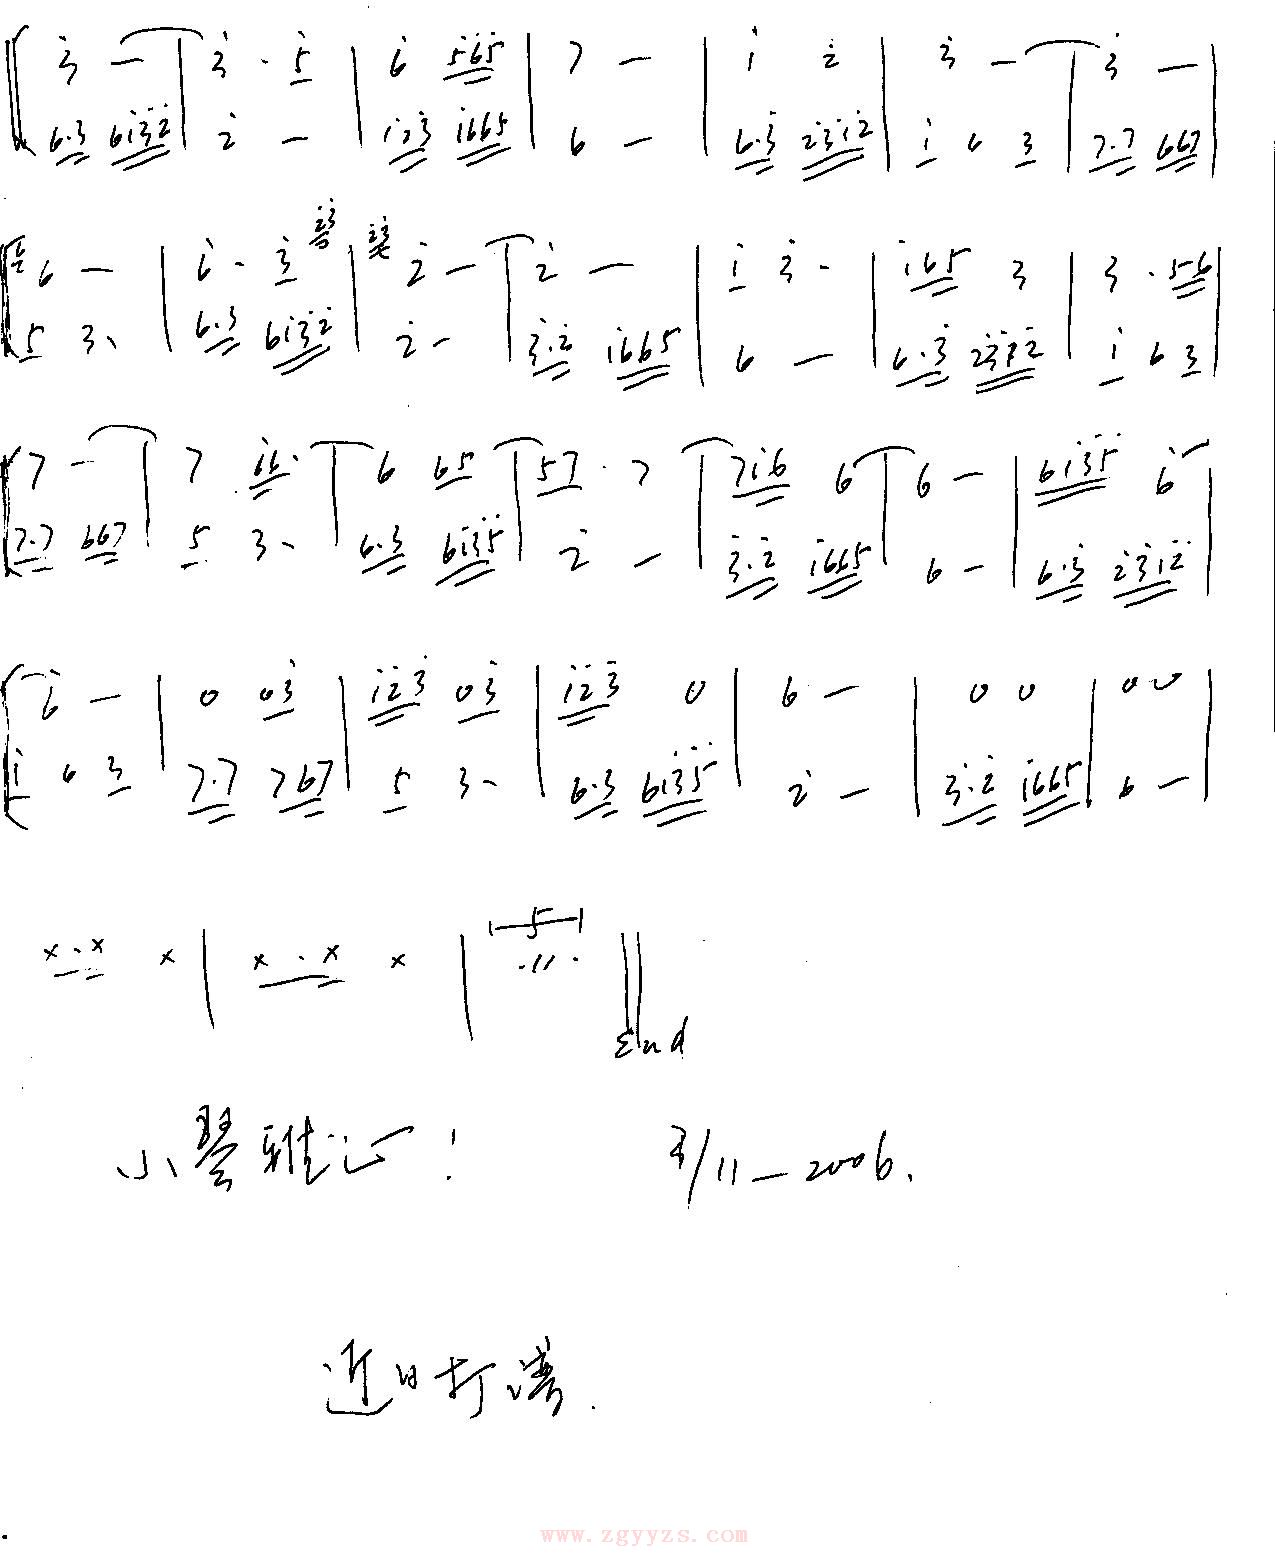 3 — | 3 · 5 | 6 565 | 7 — | i 2 | 3 — | 3 — |
6·3 6i32 | 2 — | i23 i665 | 6 — | 6·3 23i2 | i 6 3 | 7·7 667 |
6 — | 6 · 3 | 2 — | 2 — | i 3 · | i65 3 | 3 · 56 |
5 3 · | 6·3 6i32 | 2 — | 3·2 i665 | 6 — | 6·3 23i2 | i 6 3 |
7 — | 7 | 6 65 | 57 · 7 | 7i6 6 | 6 — | 6i35 6 |
7·7 667 | 5 3 · | 6·3 6i35 | 2 — | 3·2 i665 | 6 — | 6·3 23i2 |
6 — | 0 03 | i23 03 | i23 0 | 6 — | 0 0 | 0 0 |
i 6 3 | 7·7 767 | 5 3 · | 6·3 6i35 | 2 — | 3·2 i665 | 6 — |
5
x · x x | x · x x | ·//· ||
End
小琴雅正!
/11 — 2006.
近日打漆.
www.zgyyzs.com